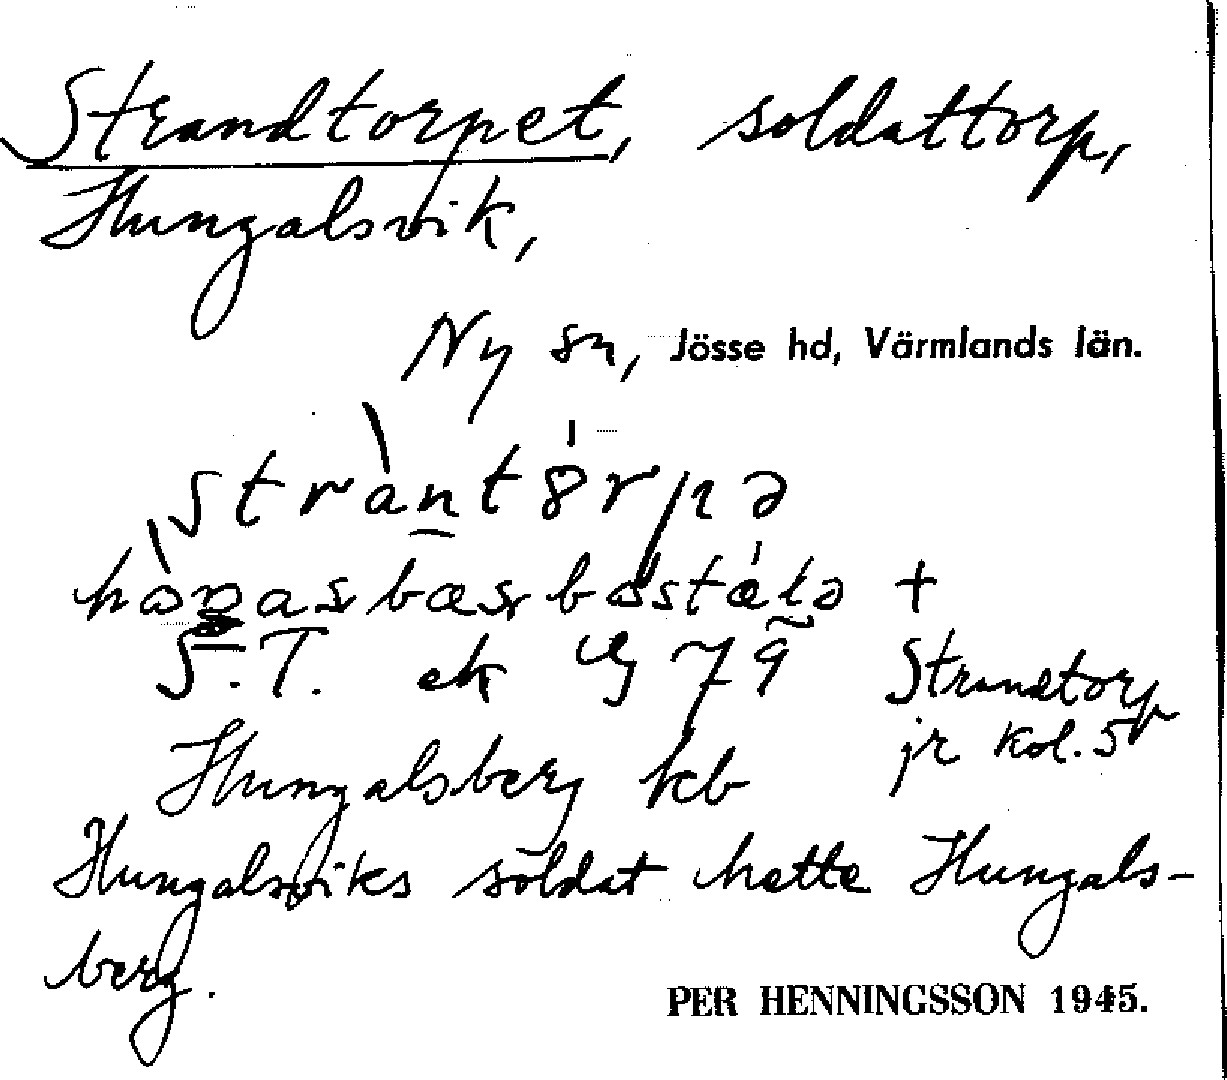 Strandtorpet, soldattorp,
Hungalsvik,
Ny sn, Jösse hd, Värmlands län.
S. T. ek 79 Strandtorp
jr kol. 5
Hungalsberg kb
Hungalsviks soldat hette Hungals-
berg.
PER HENNINGSSON 1945.